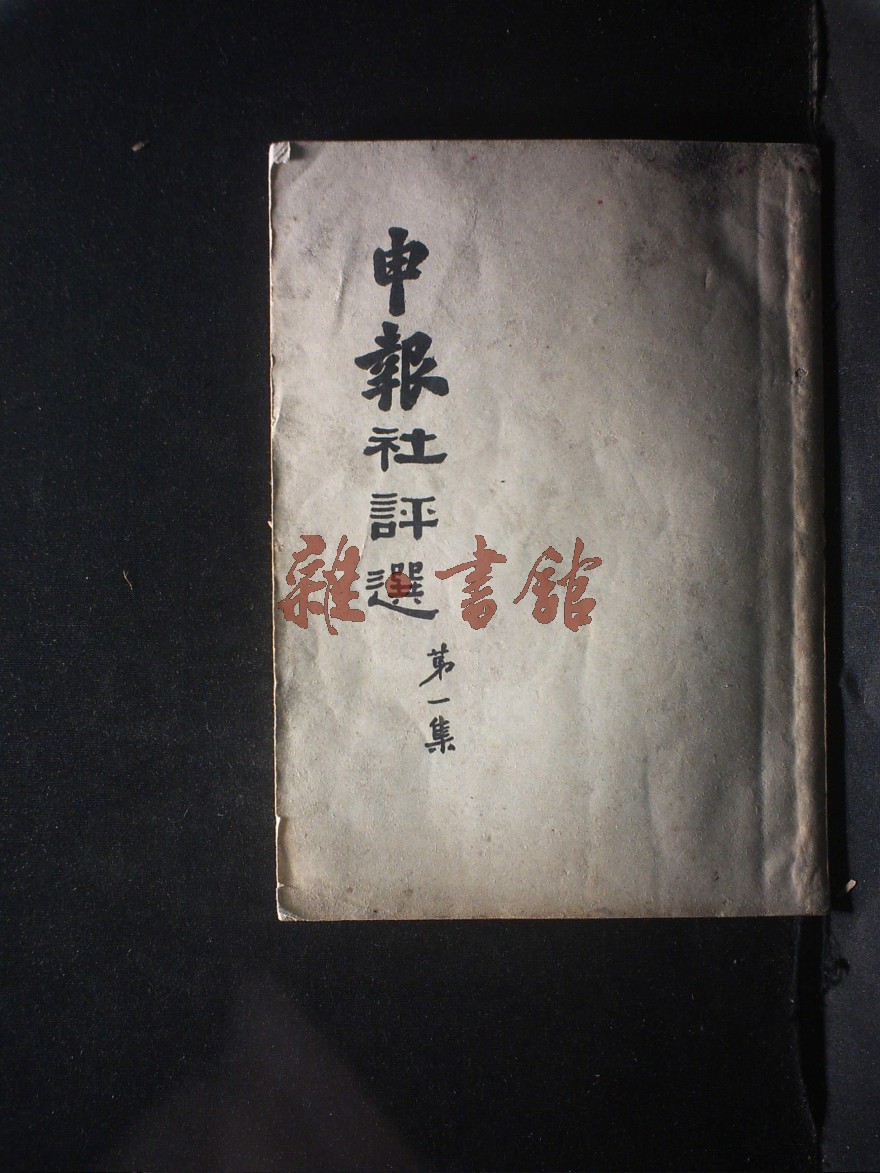 申報社評選
第一集
雜書館